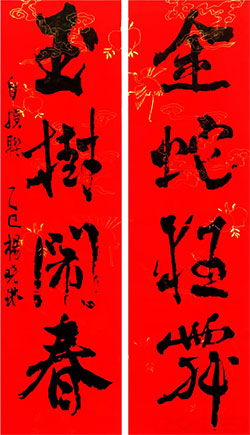 金蛇狂舞
玉樹鬧春
自撰聯 乙巳楊曉